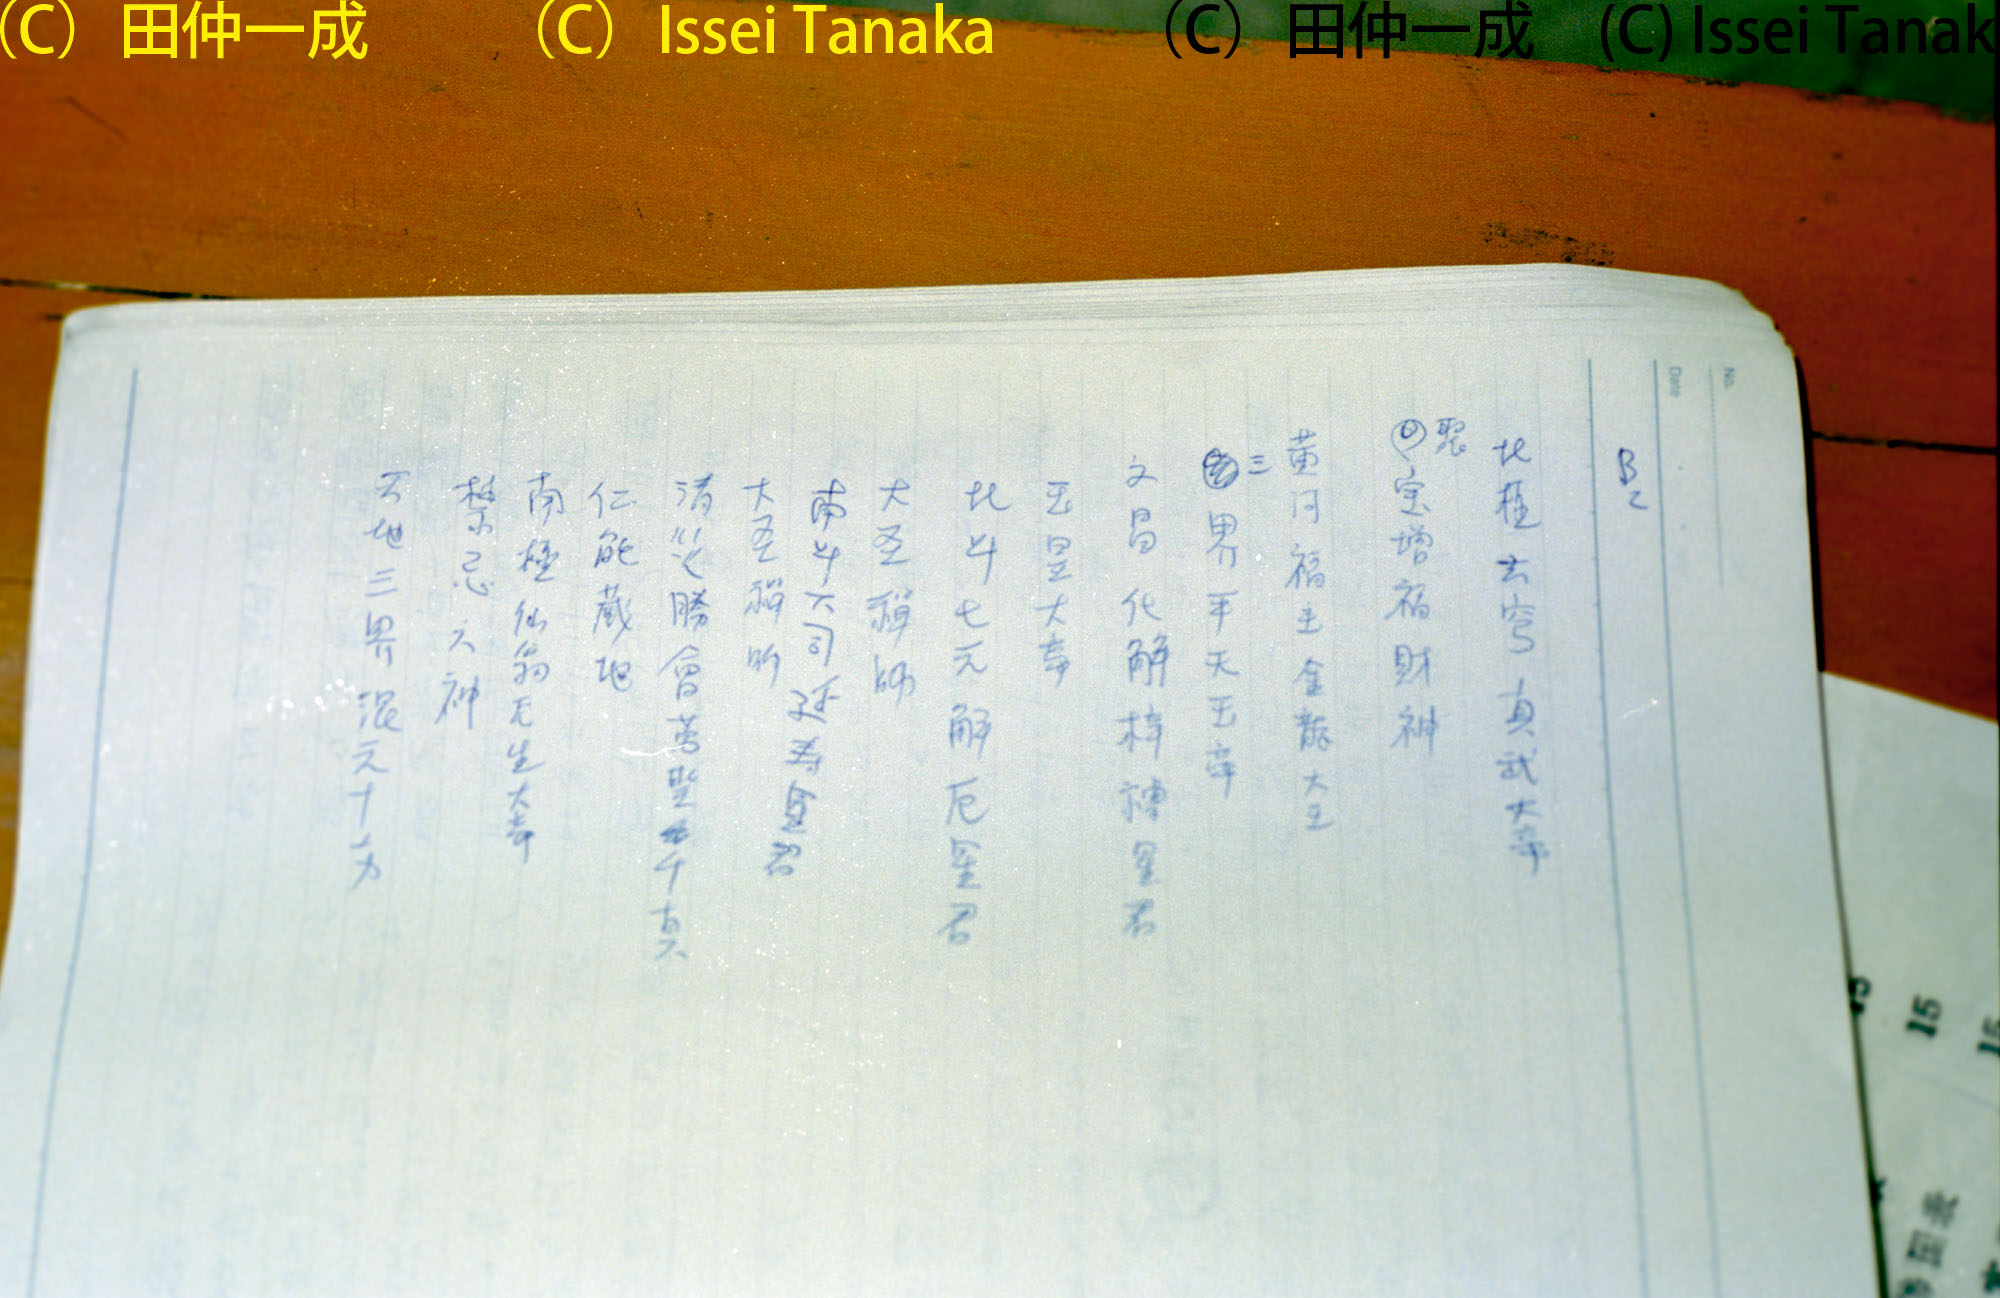 (C) 田仲一成 (C) Issei Tanaka (C) 田仲一成 (C) Issei Tanak
No.
Date
B2
北極玄穹真武大帝
聚宝增福財神
黄河福主金龍大王
三界平天王帝
文昌化解梓潼星君
玉皇大帝
北斗七元解厄星君
大圣禅师
南斗六司延寿星君
大圣禅
消災勝會萬聖千真
仁能蔵地
南極仙翁无生大帝
禁忌六神
天地三界混元十方
15
15
15